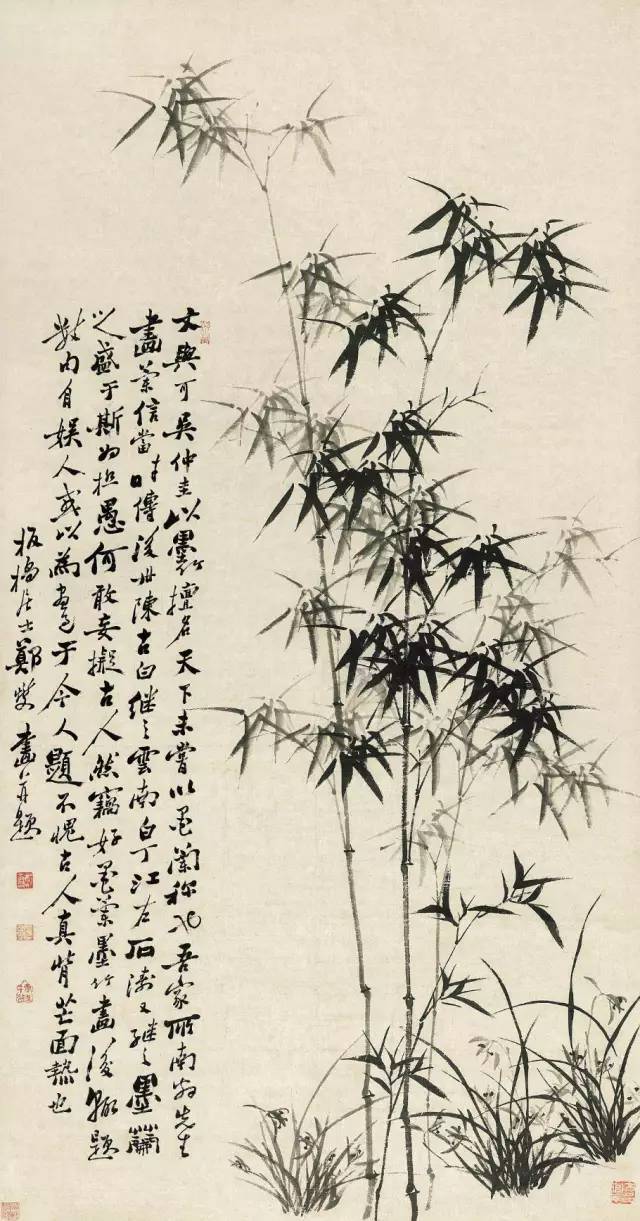 文與可吳仲圭以墨竹擅名天下未嘗以墨蘭称也吾家所南翁先生
畫蘭信當时傳後世陳古白继之雲南白丁江右石濤又继之墨蘭
之盛于斯為極愚何敢妄擬古人然竊好墨蘭墨竹畫後輒題
內自娛人或以為于今人不愧古人真背芒面熱也
板橋居士鄭燮畫并題